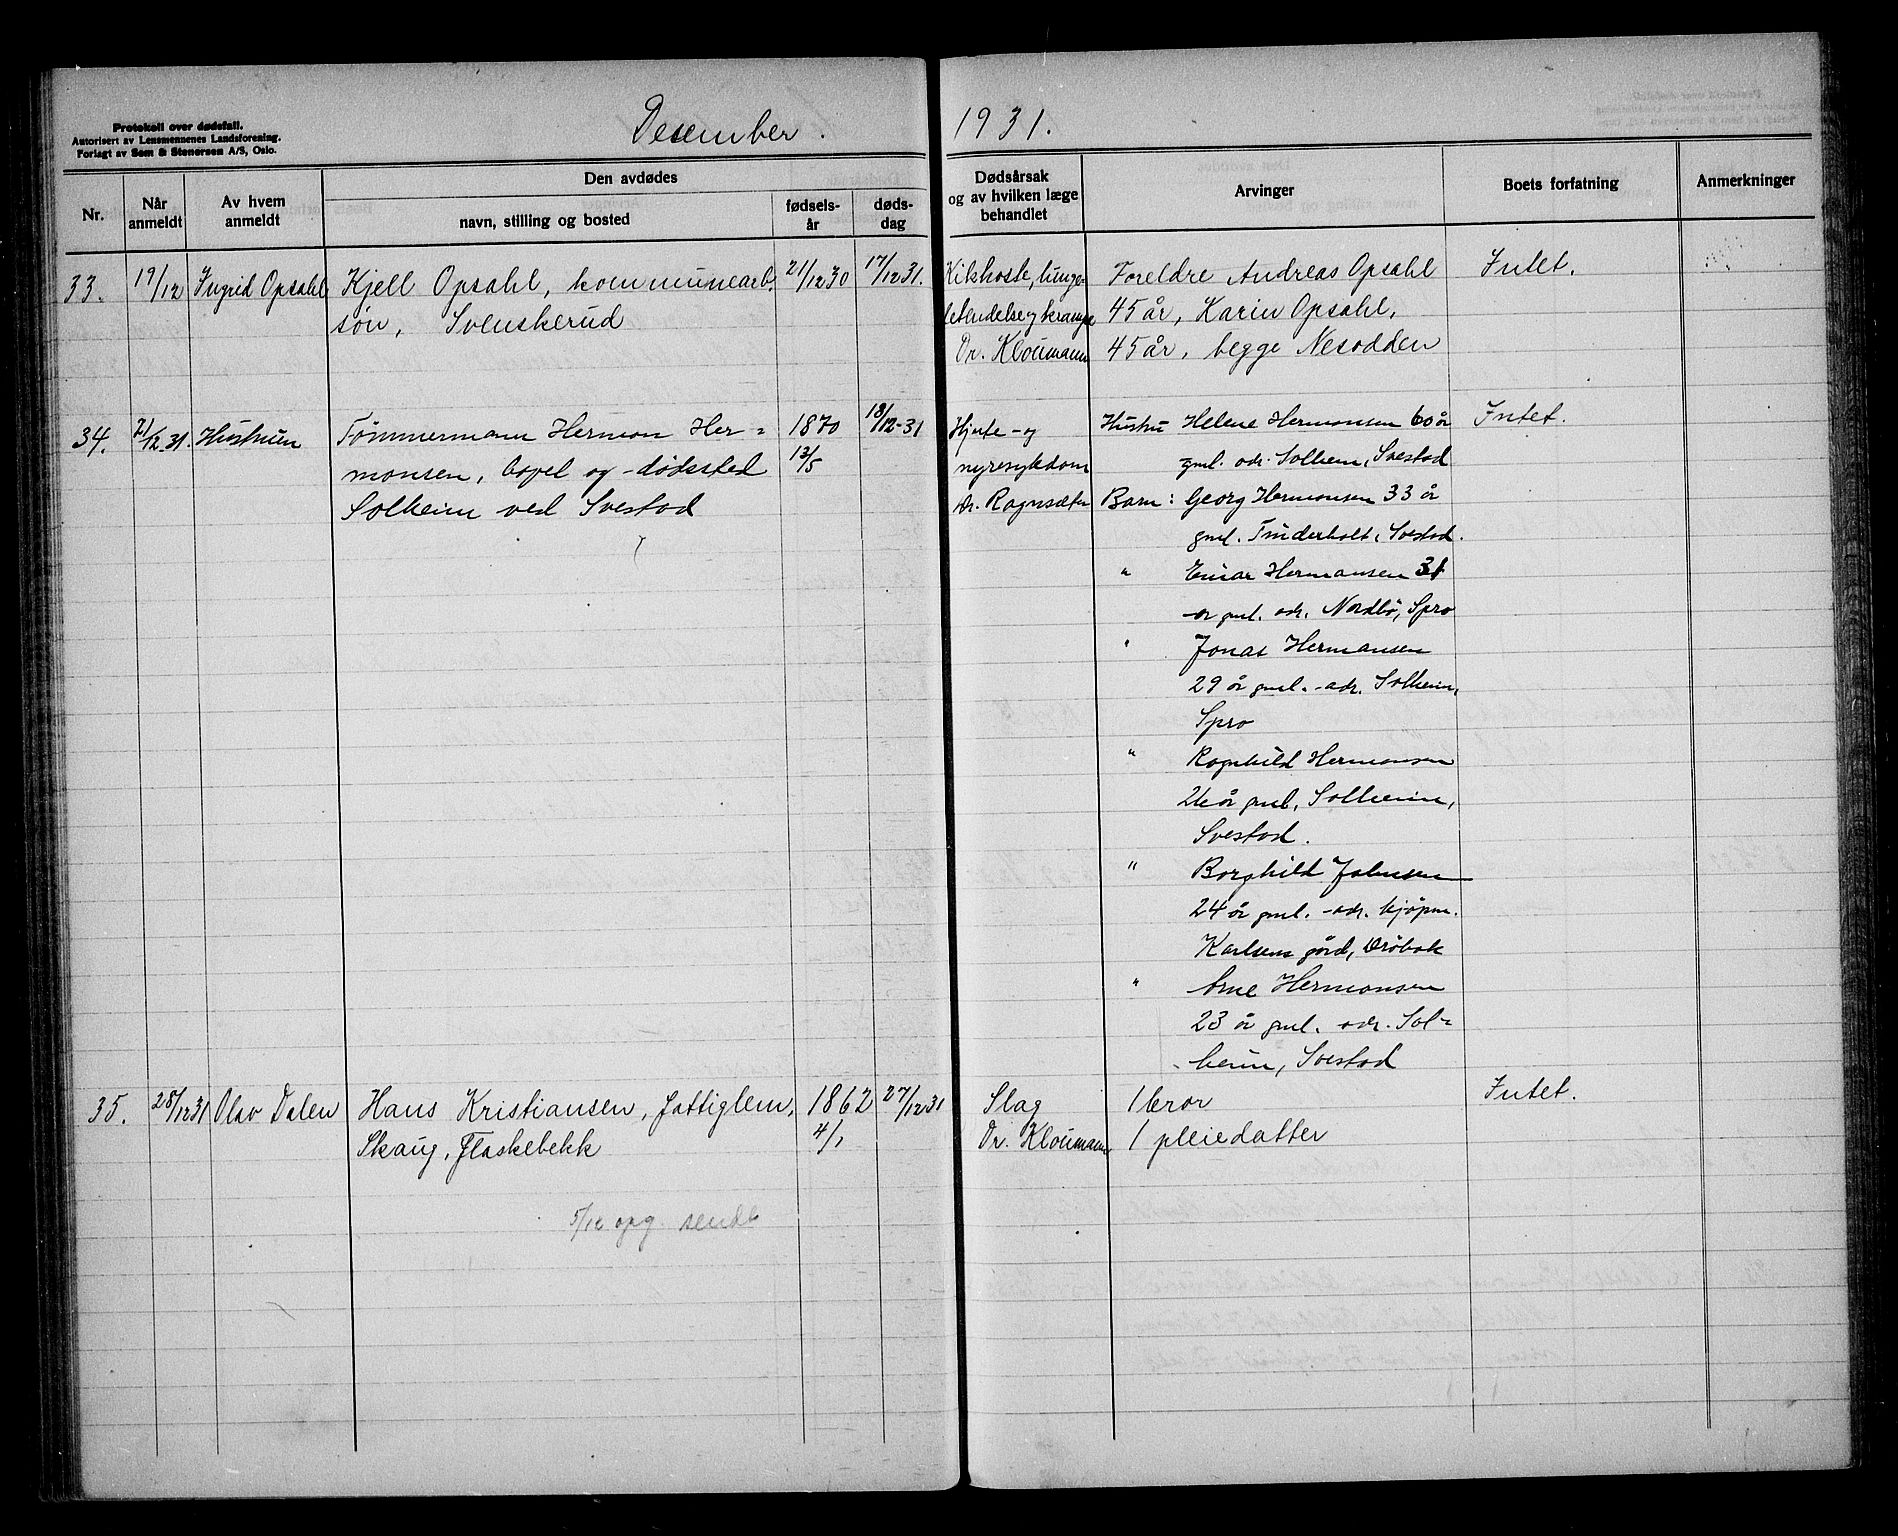 Protokoll over dødsfall.
Autorisert av Lensmennenes Landsforening.
Forlagt av Sem & Stenersen A/S, Oslo.
Desember. 1931.
Nr.
Når anmeldt
Av hvem anmeldt
Den avdødes
navn, stilling og bosted
fødselsår
dødsdag
Dødsårsak
og av hvilken læge
behandlet
Arvinger
Boets forfatning
Anmerkninger
33. 19/12 Ingrid Opsahl Kjell Opsahl, kommunearb. 21/12 30 17/12 31.
søn, Svenskerud
Kikhoste, lunge-
betendelse og krampe
Dr. Kloumann
Foreldre Andreas Opsahl
45 år, Karin Opsahl,
45 år, begge Nesodden
Intet.
34. 21/12.31. Hustruen Tømmermann Herman Her-
mansen, bopel og -dødssted
Solheim ved Svestad
1870
13/5
18/12-31
Hjerte- og
nyresykdom
dr. Ragnsæter
Hustru Helene Hermansen 60 år
gml. adr. Solheim, Svestad
Barn: Georg Hermansen 33 år
gml. Tinderholt, Svestad.
" Einar Hermansen 31
år gml. adr. Nordbø, Spro
" Jonas Hermansen
29 år gml. - adr. Solheim,
Spro
" Ragnhild Hermansen
26 år gml. Solheim,
Svestad.
" Borghild Johnsen
24 år gml. - adr. kjøpm.
Karlsens gård, Drøbak
" Arne Hermansen
23 år gml. adr. Sol-
heim, Svestad
Intet.
35. 28/12 31 Olav Dalen Hans Kristiansen, fattiglem,
Skaug, Flaskebekk
1862
4/1
27/12 31
Slag
Dr. Kloumann
1 bror
1 pleiedatter
Intet.
5/12 opg. sendt